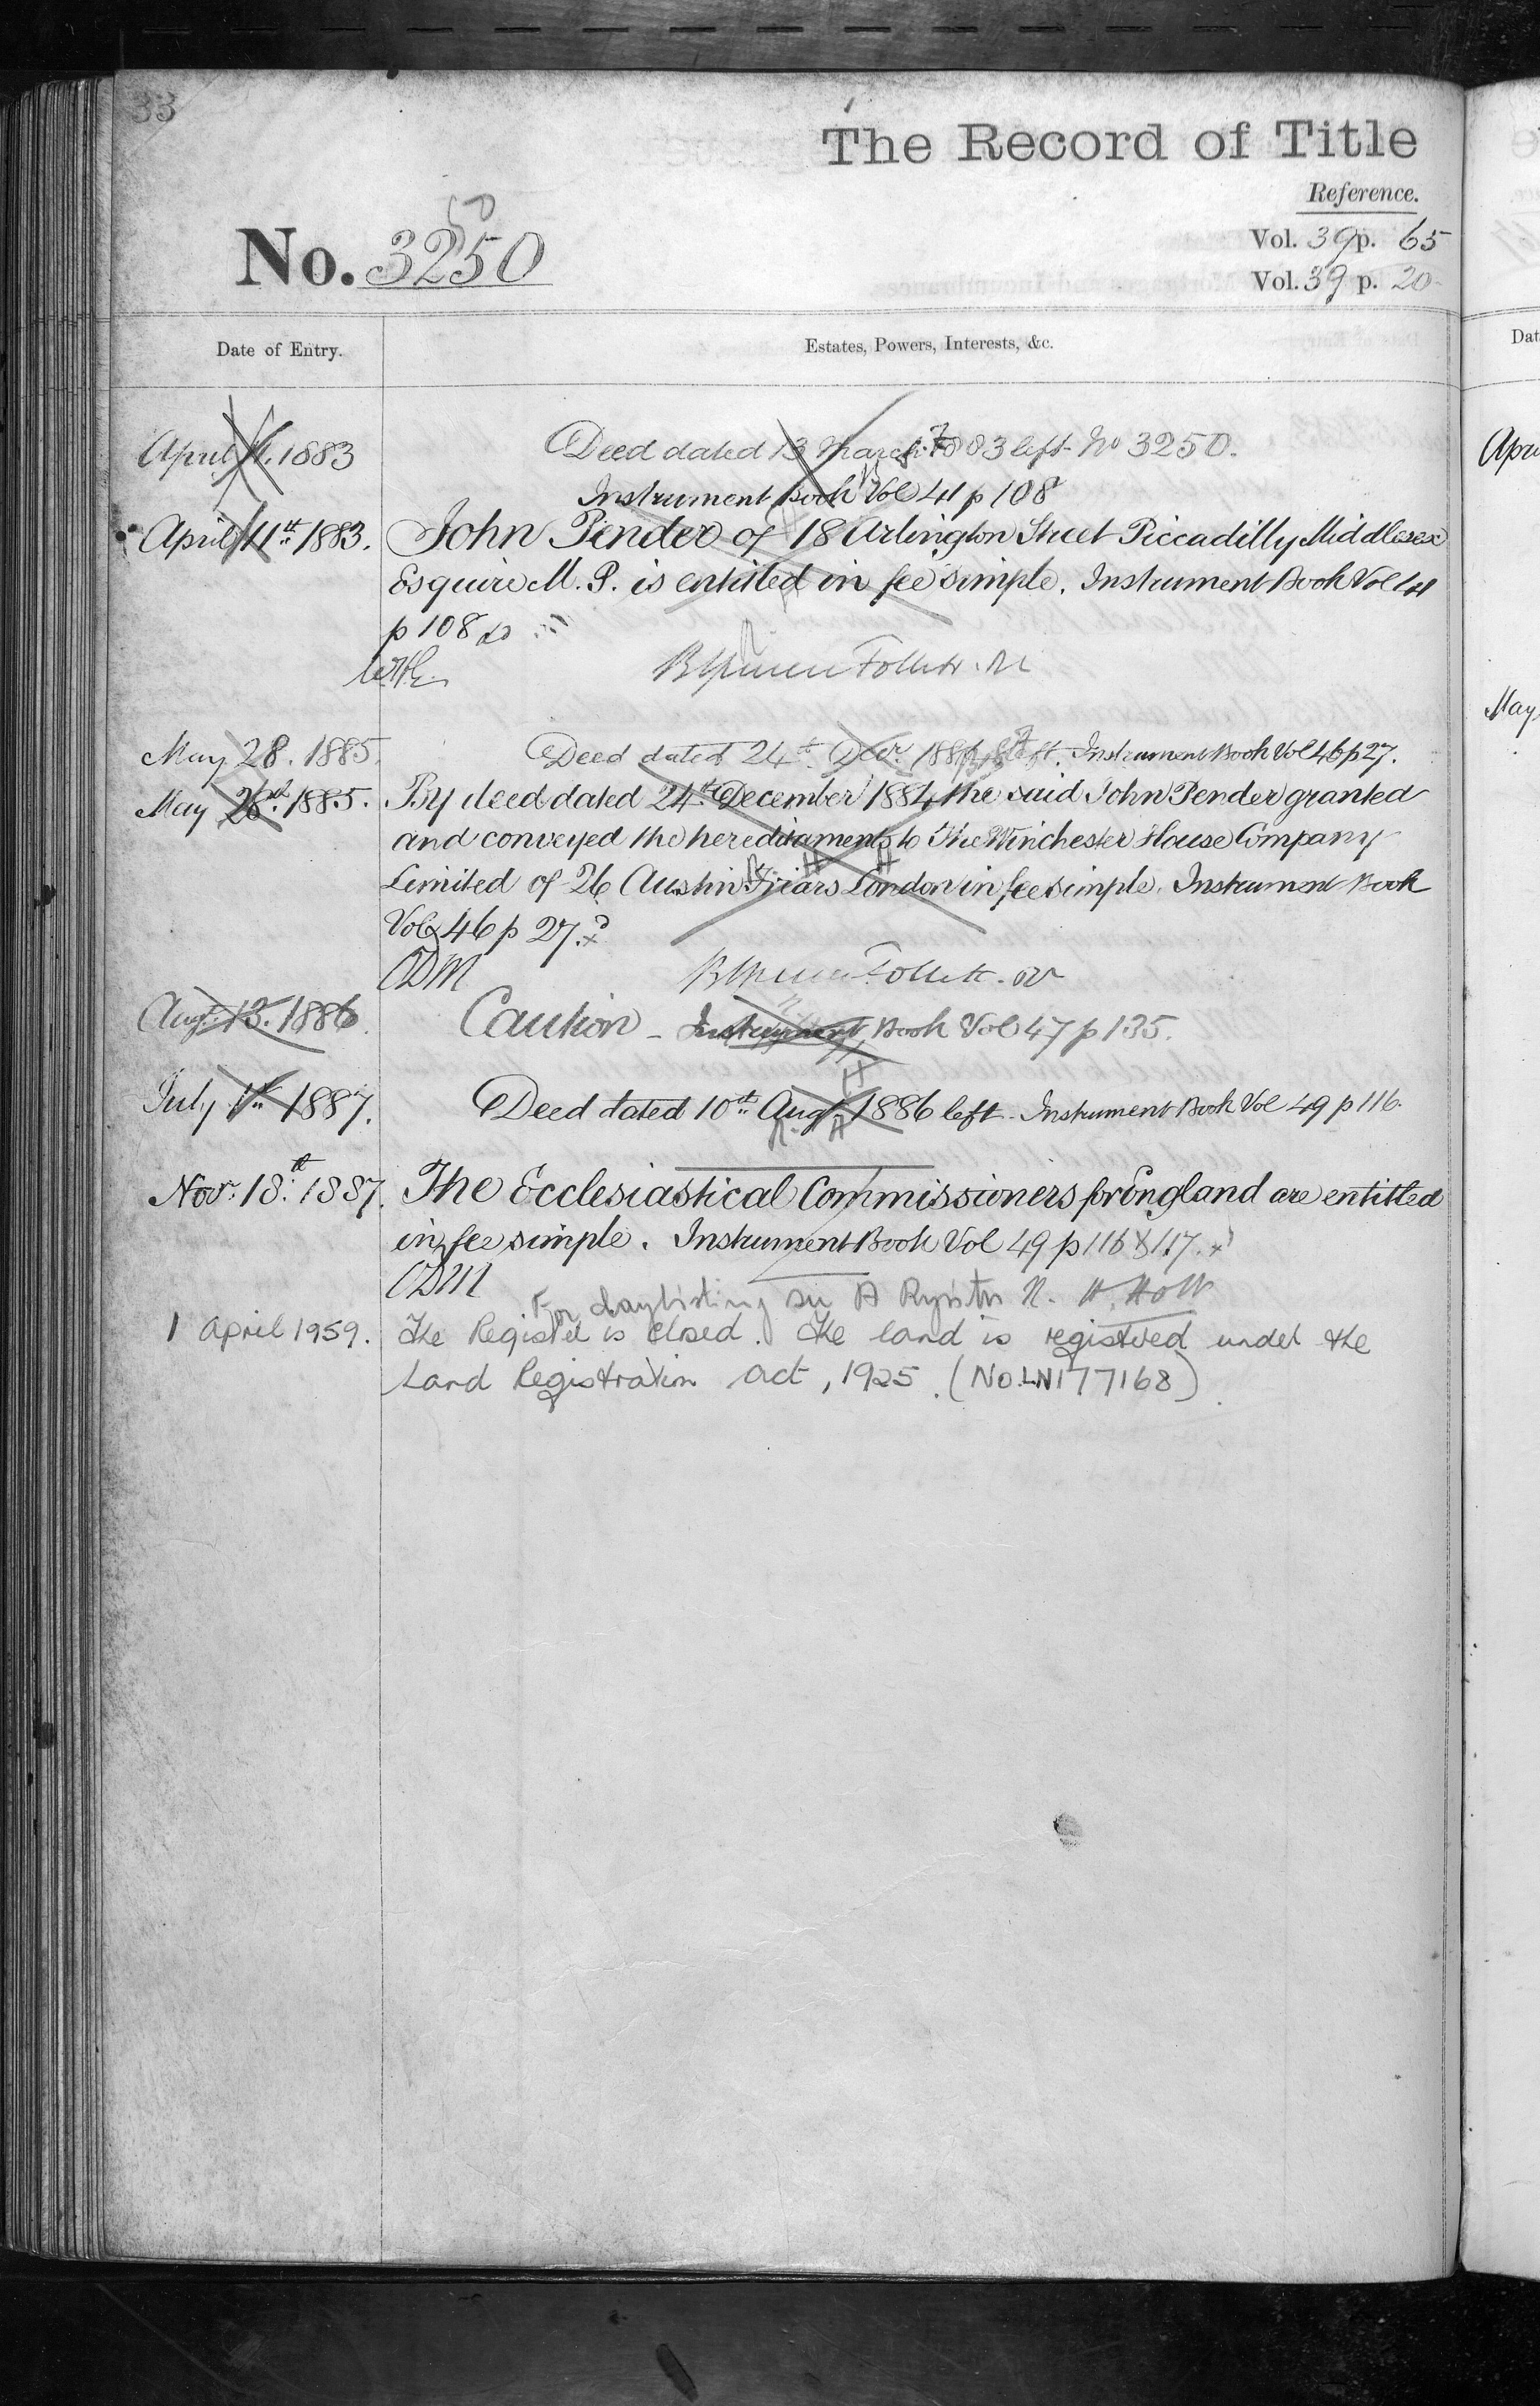 33
The Record of Title
Reference.
No. 3250
50
Vol. 39 p. 65
Vol. 39 p. 20
Date of Entry.
Estates, Powers, Interests, &c.
April 11. 1883 Deed dated 13 March 1883 left No 3250.
Instrument Book Vol 41 p 108
April 11th 1883. John Pender of 18 Arlington Street Piccadilly Middlesex
Esquire M.P. is entitled in fee simple. Instrument Book Vol 41
p 108
May 28. 1885. Deed dated 24th Decr. 1884 left. Instrument Book Vol 46 p 27.
May 28th 1885. By deed dated 24th December 1884 the said John Pender granted
and conveyed the hereditaments to The Winchester House Company
Limited of 26 Austin Friars London in fee simple. Instrument Book
Vol 46 p 27.
ODM
Augt. 13. 1886. Caution - Instrument Book Vol 47 p 135.
July 1st 1887. Deed dated 10th Augt. 1886 left. Instrument Book Vol 49 p 116.
Novr. 18th 1887. The Ecclesiastical Commissioners for England are entitled
in fee simple. Instrument Book Vol 49 p 116 & 117.
ODM
R. H. Holt
1 April 1959. The Register is closed. The land is registered under the
Land Registration Act, 1925. (No. LN177168)
Dat
Apri
May